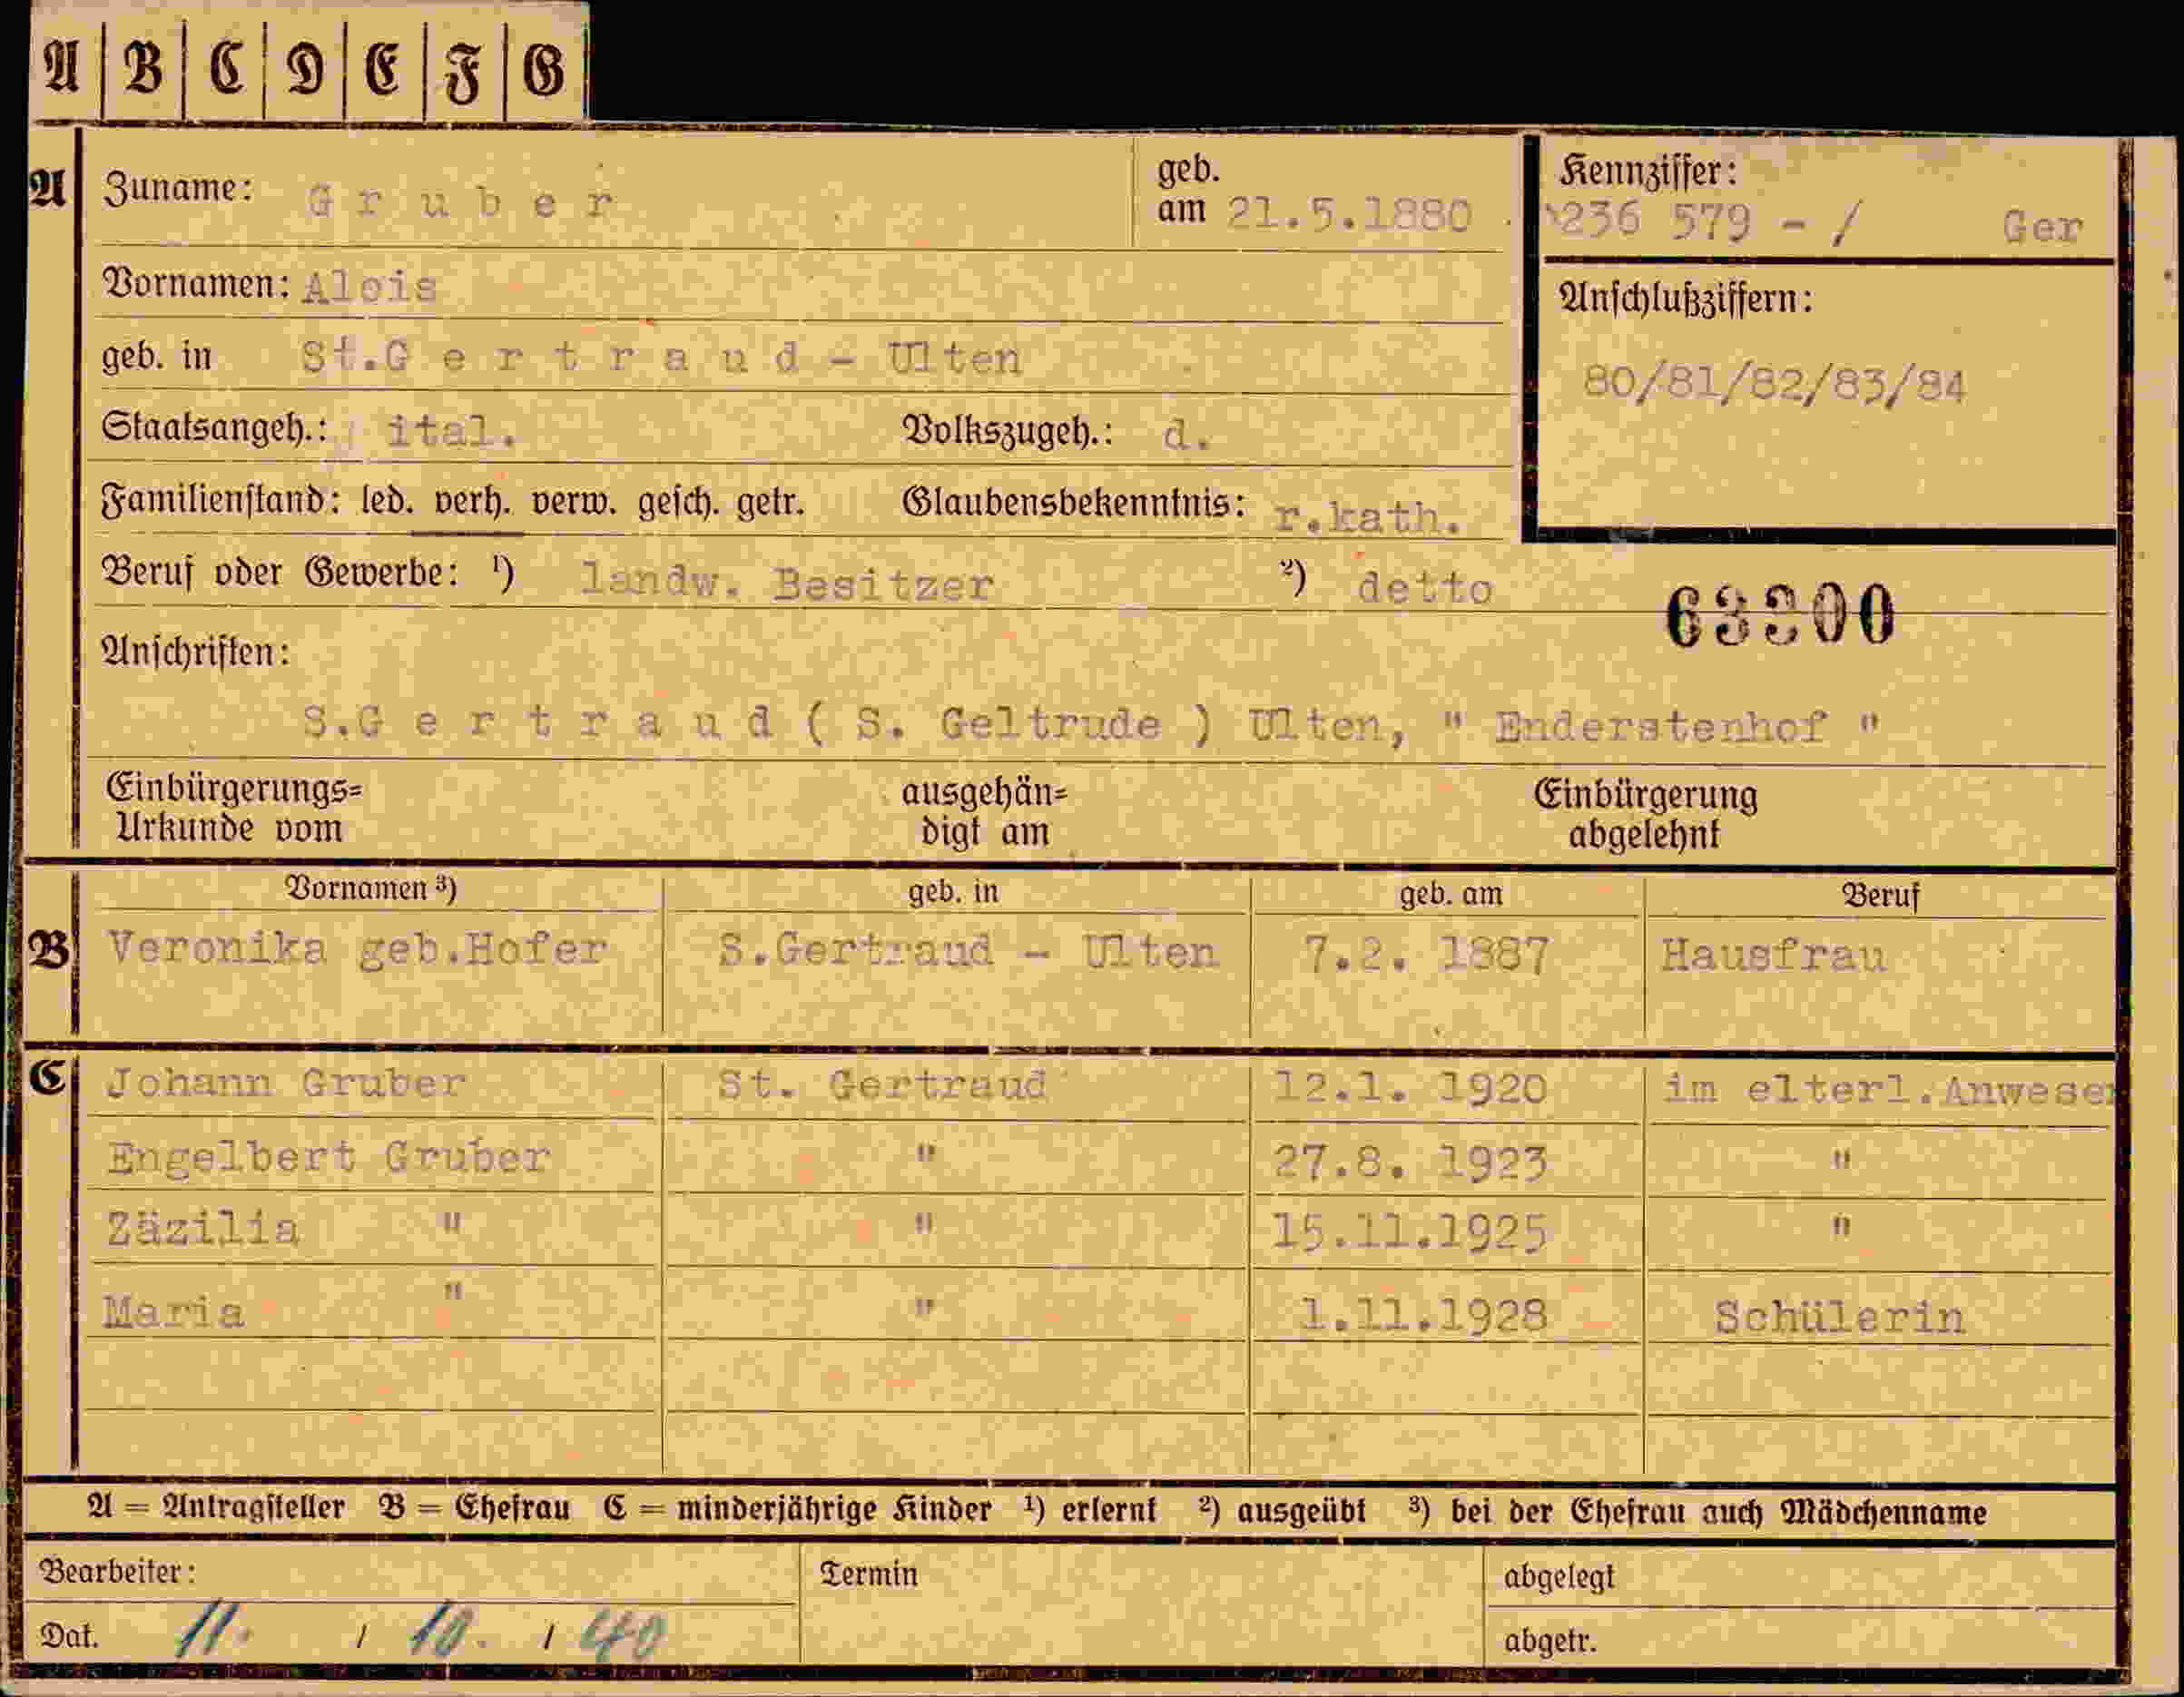 A B C D E F G
A Zuname: Gruber geb. am 21.5.1880 Kennziffer: 236 579 - / Ger
Vornamen: Alois
Anschlußziffern:
geb. in St.Gertraud - Ulten
80/81/82/83/84
Staatsangeh.: ital. Volkszugeh.: d.
Familienstand: led. verh. verw. gesch. getr. Glaubensbekenntnis: r.kath.
Beruf oder Gewerbe: ¹) landw. Besitzer ²) detto
Anschriften:
S.Gertraud ( S. Geltrude ) Ulten, " Enderstenhof "
Einbürgerungs= ausgehän= Einbürgerung
Urkunde vom digt am abgelehnt
Vornamen ³) geb. in geb. am Beruf
B Veronika geb.Hofer S.Gertraud - Ulten 7.2. 1887 Hausfrau
C Johann Gruber St. Gertraud 12.1. 1920 im elterl.Anwesen
Engelbert Gruber " 27.8. 1923 "
Zäzilia " " 15.11.1925 "
Maria " " 1.11.1928 Schülerin
A = Antragsteller B = Ehefrau C = minderjährige Kinder ¹) erlernt ²) ausgeübt ³) bei der Ehefrau auch Mädchenname
Bearbeiter: Termin abgelegt
Dat. 11. / 10. / 40 abgetr.